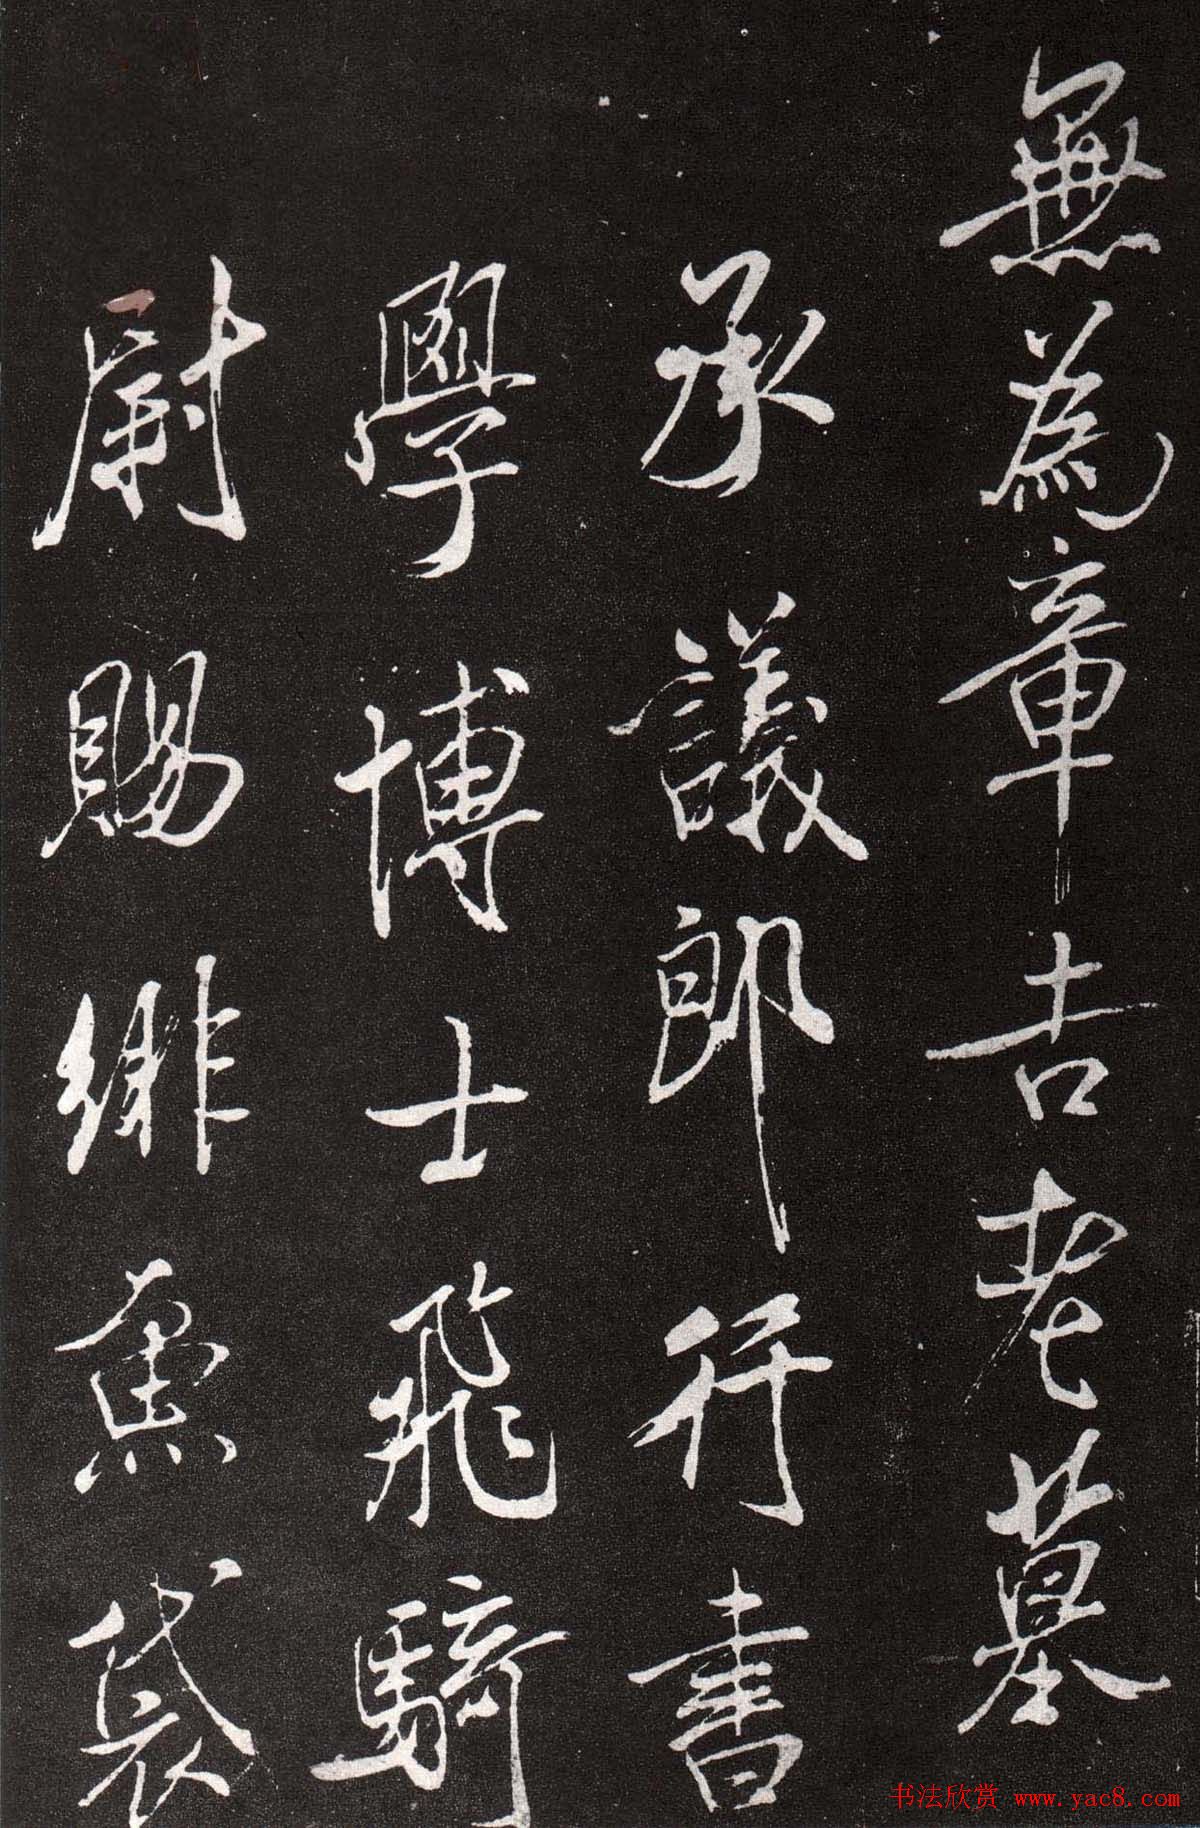 無為章吉老墓
承議郎行書
學博士飛騎
尉賜緋魚袋
书法欣赏 www.yac8.com